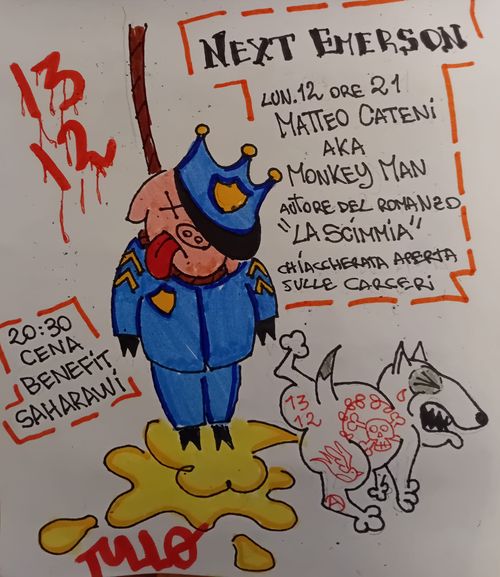 13
12
NEXT EMERSON
LUN. 12 ORE 21
MATTEO CATENI
AKA
MONKEY MAN
AUTORE DEL ROMANZO
"LA SCIMMIA"
CHIACCHERATA APERTA
SULLE CARCERI
20:30
CENA
BENEFIT
SAHARAWI
13
12
A
TULLO